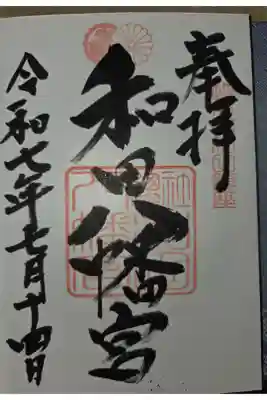 奉拝
和田八幡宮
令和七年七月十四日